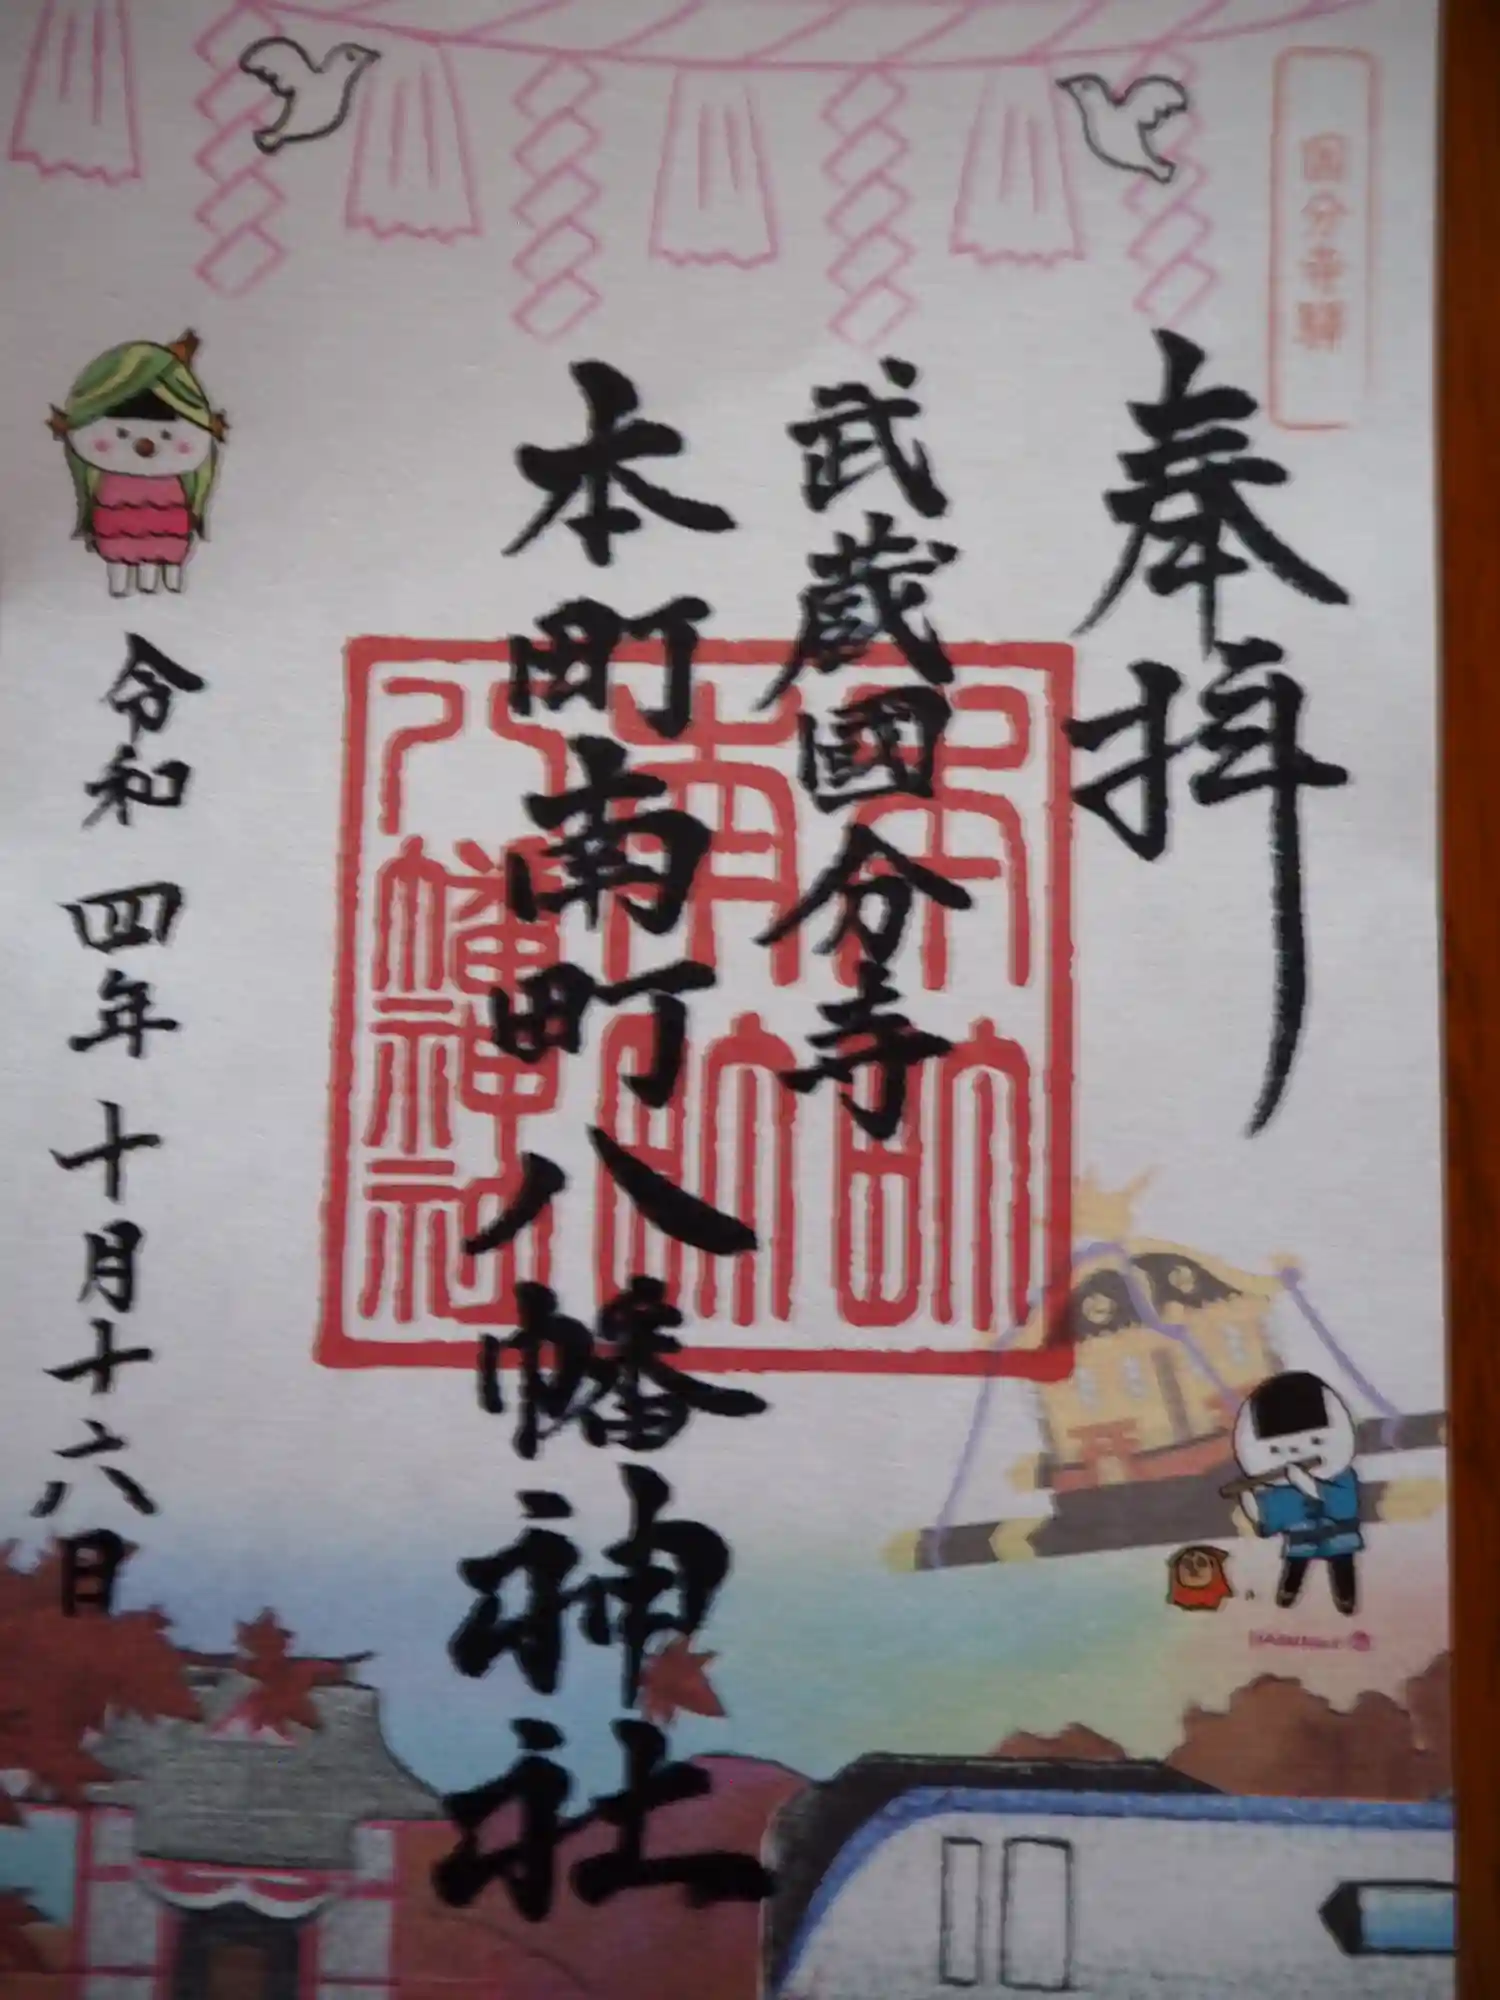 国分寺驛
奉拝
武蔵國分寺
本町南町八幡神社
令和四年十月十六日
本町
南町
八幡神社